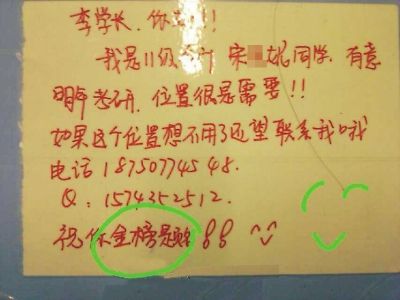 李学长，你好!!!
我是11级会计 宋 妮同学，有意
明年考研，位置很是需要!!
如果这个位置想不用了还望联系我哦
电话 18750774548.
Q：1574352512.
祝你金榜题名!!